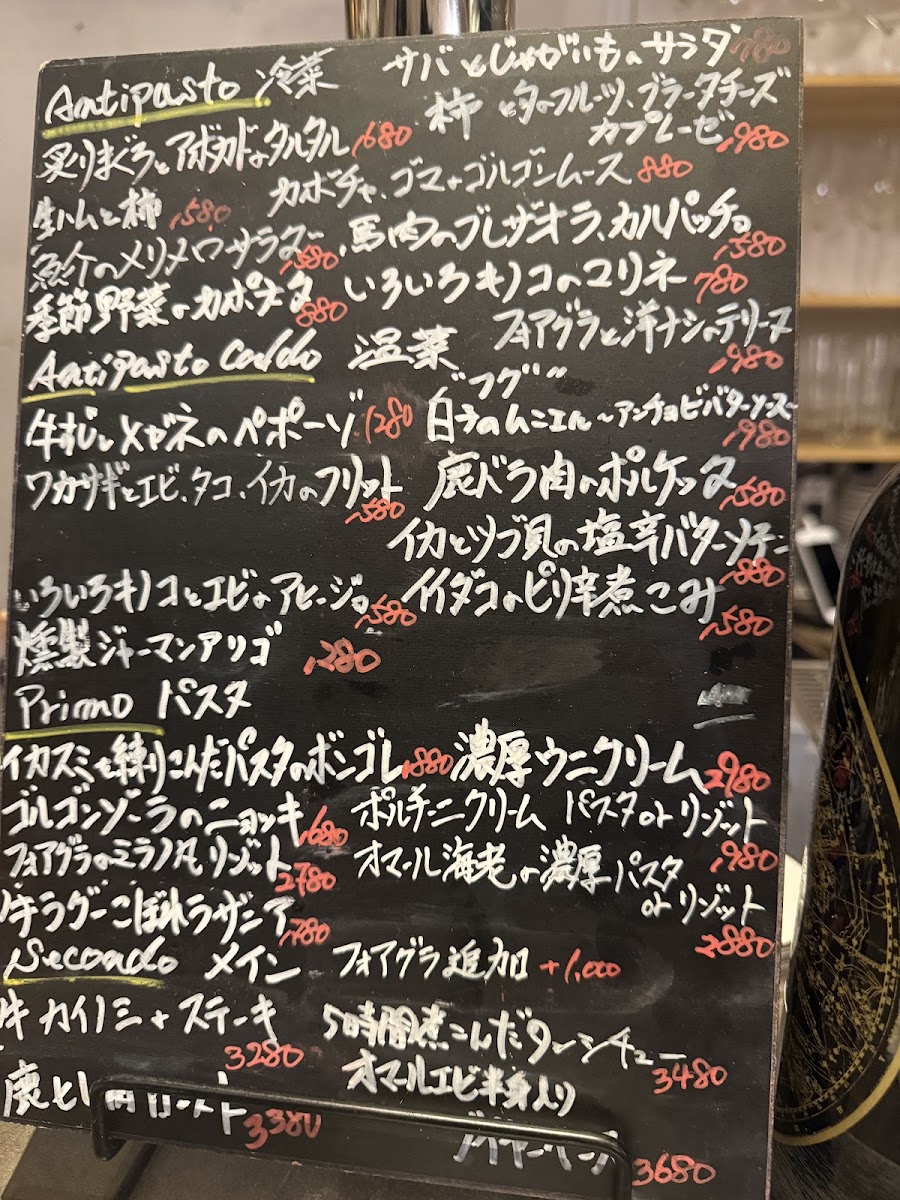 Antipasto 冷菜
サバとじゃがいものサラダ 780
炙りまぐろとアボカドのタルタル 1680
柿と夕のフルーツ、ブラータチーズ
カプレーゼ 1980
生ハムと柿 1580
カボチャ、ゴマ+ゴルゴンムース 880
魚介のメリメロサラダ 1580
馬肉のブレザオラ、カルパッチョ 1580
季節野菜のカポナタ 880
いろいろキノコのマリネ 780
フォアグラと洋ナシのテリーヌ 1980
Antipasto caldo 温菜
牛すじとメガネのペポーゾ 1280
"フグ"
白子のムニエル~アンチョビバターソース~ 1980
ワカサギとエビ、タコ、イカのフリット 1580
鹿バラ肉のポルケッタ 1580
イカとツブ貝の塩辛バターソテー 1880
いろいろキノコとエビのアヒージョ 1580
イイダコのピリ辛煮こみ 1580
燻製ジャーマンアリゴ 1280
Primo パスタ
イカスミを練りこんだパスタのボンゴレ 1880
濃厚ウニクリーム 2980
ゴルゴンゾーラのニョッキ 1680
ポルチーニクリーム パスタorリゾット 1980
フォアグラのミラノ風リゾット 2780
オマール海老の濃厚パスタ
orリゾット 2880
牛ラグーこぼれラザニア 1780
Secondo メイン
フォアグラ追加 +1,000
牛カイノミ+ステーキ 3280
5時間煮こんだタンシチュー 3480
鹿ヒレ肉ロースト 3380
オマールエビ半身入り
3680